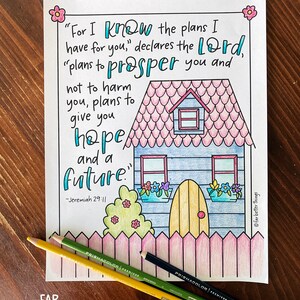 "For I know the plans I
have for you," declares the Lord,
"plans to prosper you and
not to harm
you, plans to
give you
hope
and a
future"
~Jeremiah 29:11
FAR